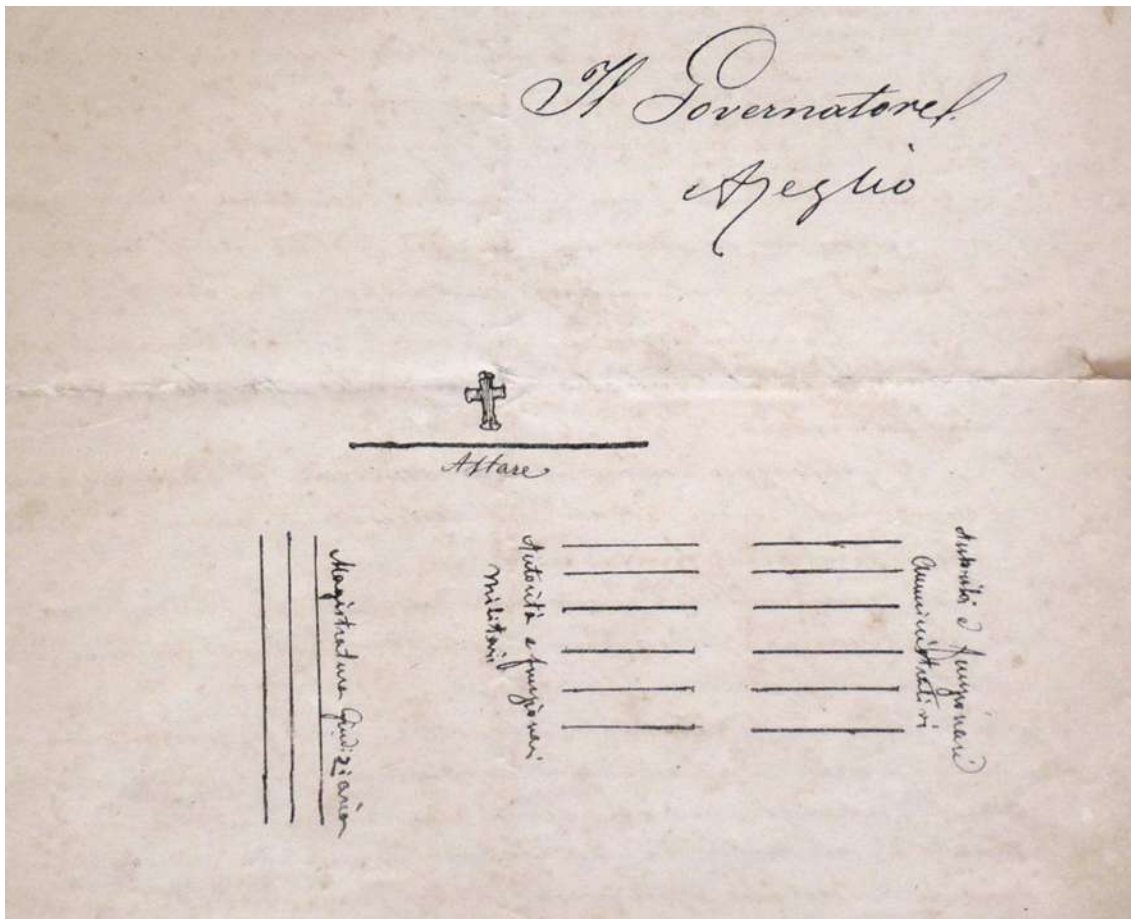 Il Governatore
Azeglio
Altare
Magistratura Giudiziaria
Autorità e funzionari
militari
Autorità e funzionari
amministrativi